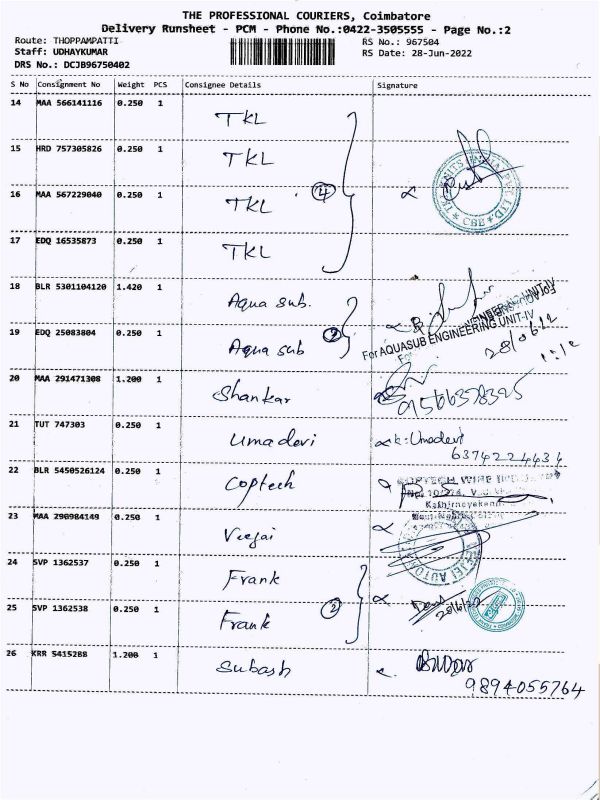 THE PROFESSIONAL COURIERS, Coimbatore
Delivery Runsheet - PCM - Phone No.:0422-3505555 - Page No.:2
Route: THOPPAMPATTI
RS No.: 967504
Staff: UDHAYKUMAR
RS Date: 28-Jun-2022
DRS No.: DCJB96750402
S No Consignment No Weight PCS Consignee Details Signature
14 MAA 566141116 0.250 1 TKL
15 HRD 757305826 0.250 1 TKL
16 MAA 567229040 0.250 1 TKL (4)
17 EDQ 16535873 0.250 1 TKL
18 BLR 5301104120 1.420 1 Aqua sub.
19 EDQ 25083804 0.250 1 Aqua sub
For AQUASUB ENGINEERING UNIT-IV
28/06/22
20 MAA 291471308 1.200 1 Shankar
21 TUT 747303 0.250 1 Umadevi k. Umadevi
6374224434
22 BLR 5450526124 0.250 1 Coptech
COPTECH WIRE
23 MAA 290984149 0.250 1 Veejai
24 SVP 1362537 0.250 1 Frank
25 SVP 1362538 0.250 1 Frank (2)
28/6/22
26 KRR 5415288 1.200 1 Subash
9894055764